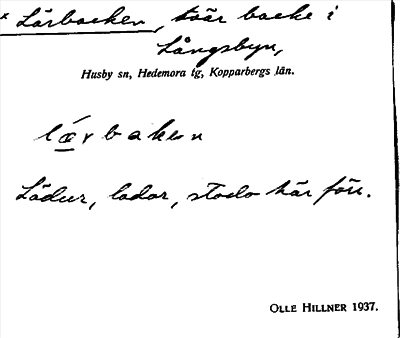 Lärbacken, tvär backe i
Långsbyn,
Husby sn, Hedemora tg, Kopparbergs län.
lǽrbaken
Lädur, lador, stodo här förr.
OLLE HILLNER 1937.